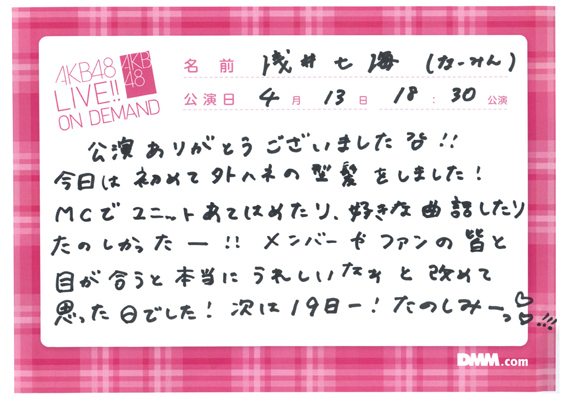 AKB48
LIVE!!
ON DEMAND
AKB
48
名前 浅井七海(なーみん)
公演日 4月13日 18:30公演
公演ありがとうございましたな!!
今日は初めて外ハネの型髪をしました!
MCでユニットあてはめたり、好きな曲話したり
たのしかったー!! メンバーやファンの皆と
目が合うと本当にうれしいなぁと改めて
思った日でした! 次は19日ー! たのしみーっ♡♡!!!
DMM.com